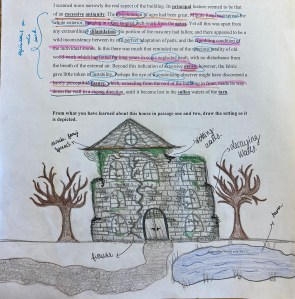 I scanned more narrowly the real aspect of the building. Its principal feature seemed to be that
of an excessive antiquity. The discoloration of ages had been great. Minute fungi overspread the
whole exterior, hanging in a fine tangled web-work from the eaves. Yet all this was apart from
any extraordinary dilapidation. No portion of the masonry had fallen; and there appeared to be a
wild inconsistency between its still perfect adaptation of parts, and the crumbling condition of
the individual stones. In this there was much that reminded me of the specious totality of old
wood-work which has rotted for long years in some neglected vault, with no disturbance from
the breath of the external air. Beyond this indication of extensive decay, however, the fabric
gave little token of instability. Perhaps the eye of a scrutinizing observer might have discovered a
barely perceptible fissure, which, extending from the roof of the building in front, made its way
down the wall in a zigzag direction, until it became lost in the sullen waters of the tarn.
From what you have learned about this house in passage one and two, draw the setting as it
is depicted.
decaying
walls
house